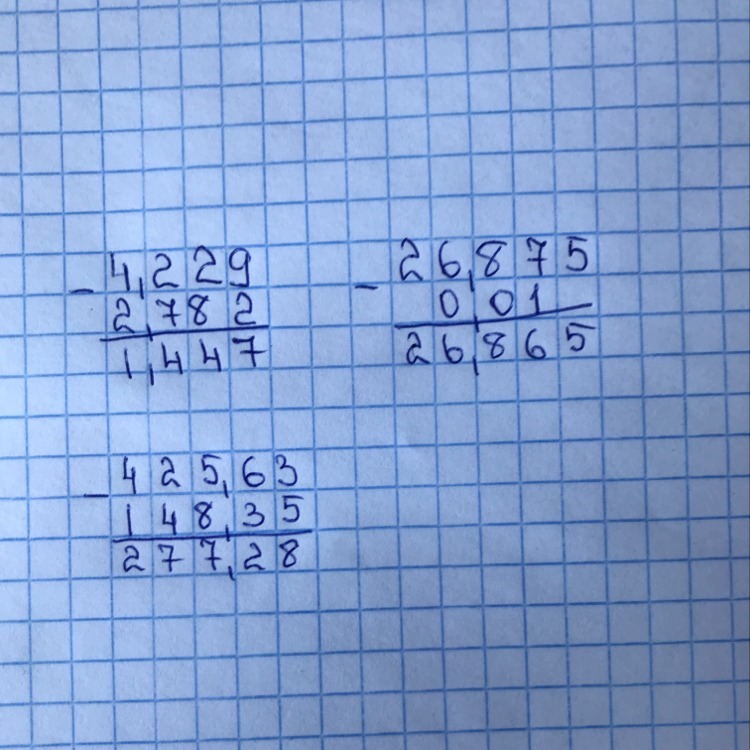 - 4,229
2,782
1,447
- 26,875
0,01
26,865
- 425,63
148,35
277,28